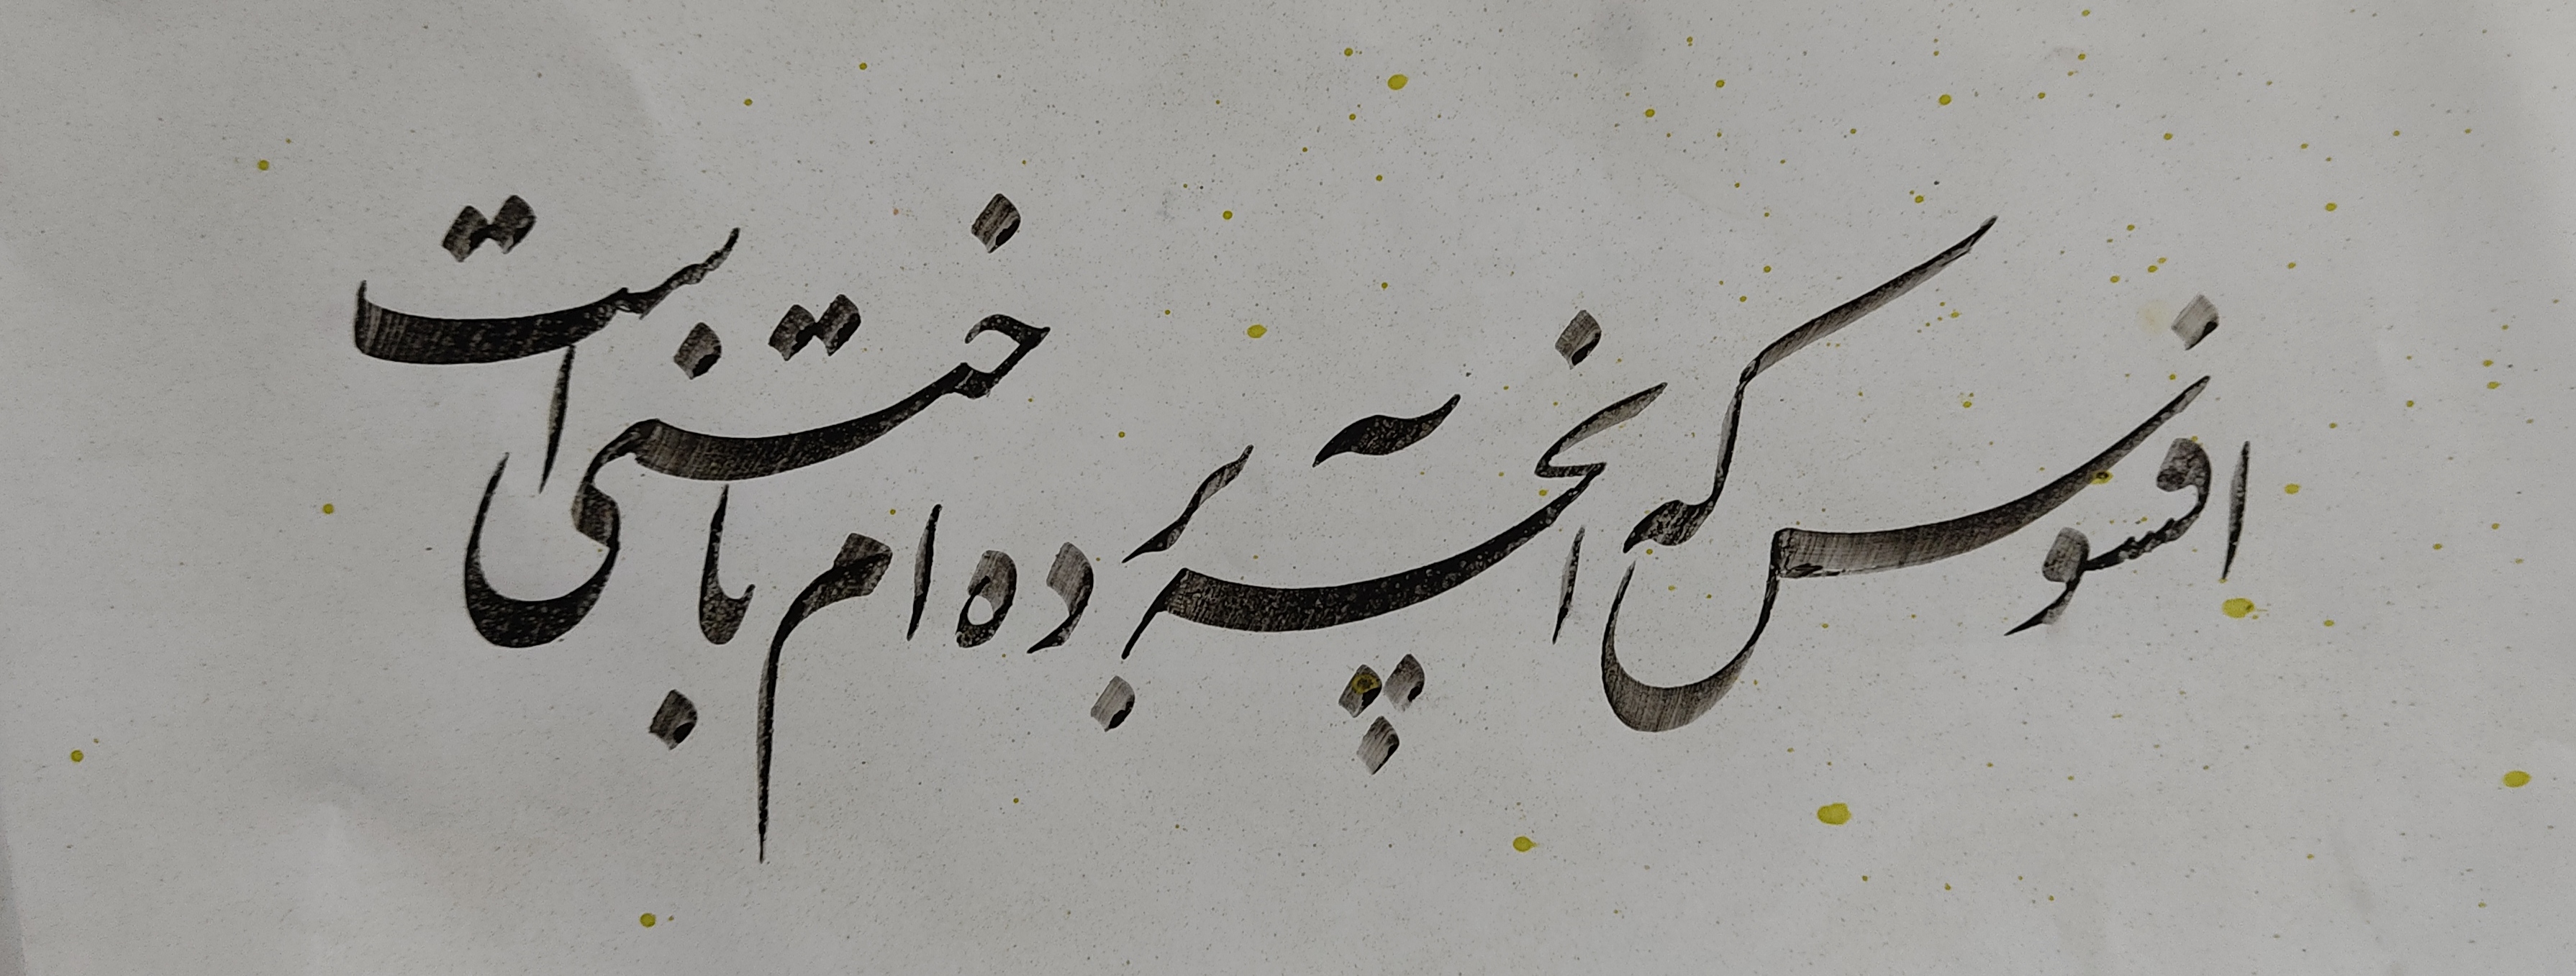 افسوس که آنچه برده ام باختنی است